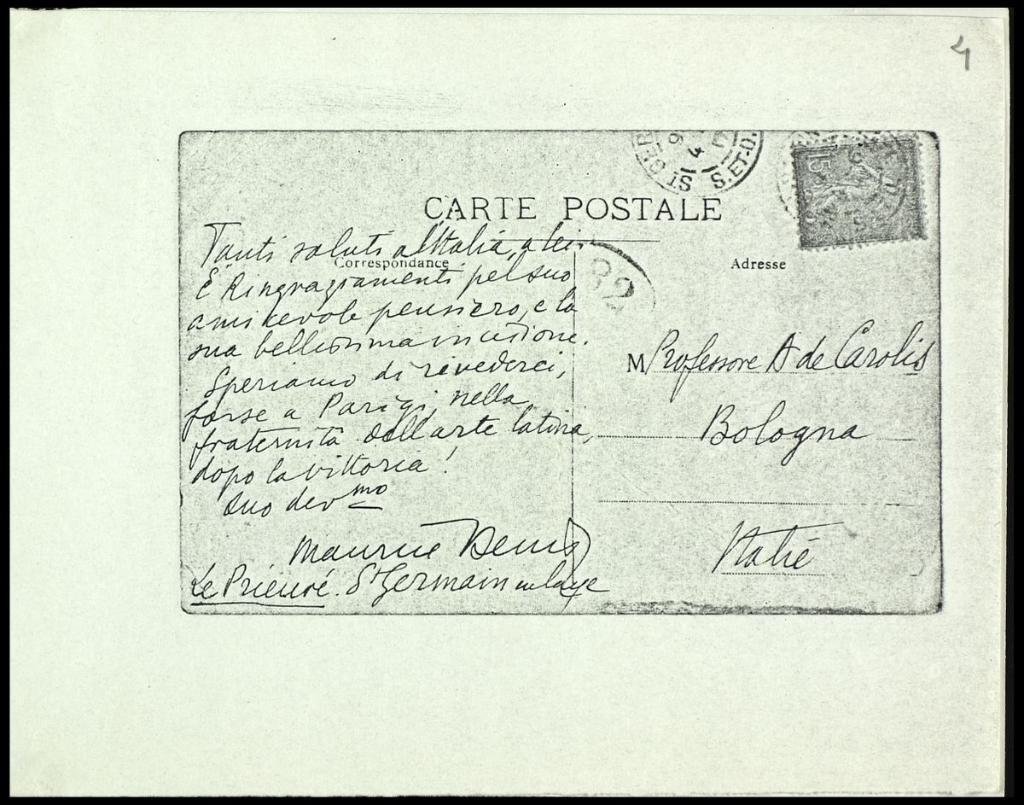 4
ST GER
S.ET-O.
15
CARTE POSTALE
Correspondance
Adresse
82
Tanti saluti a l'Italia, a lei
E Ringragiamenti pel suo
amicevole pensiero, e la
sua bellissima incisione.
Speriamo di rivederci,
forse a Parigi, nella
fraternità dell'arte latina,
dopo la vittoria!
suo dev mo
Maurice Denis
Le Prieuré. St Germain en laye
M Professore A de Carolis
Bologna
Italie